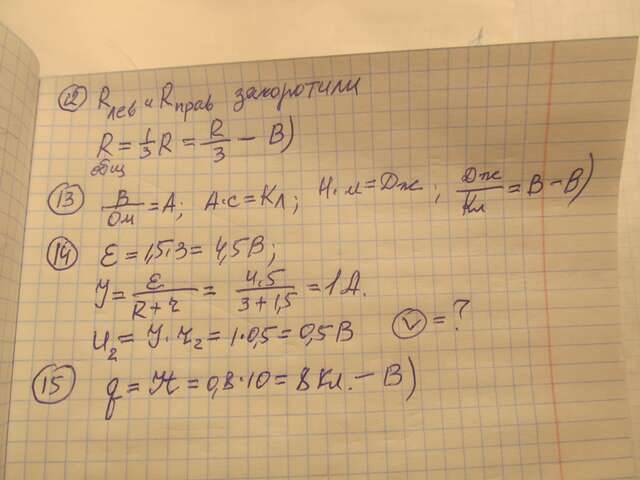 12 Rлев и Rправ закоротили
Rобщ = 1/3 R = R/3 – В)
13 В/Ом = А; А·с = Кл; Н·м = Дж; Дж/Кл = В – В)
14 Ɛ = 1,5·3 = 4,5 В;
У = Ɛ/(R + r) = 4,5/(3 + 1,5) = 1 А.
U2 = У·r2 = 1·0,5 = 0,5 В (V) = ?
15 q = Уt = 0,8·10 = 8 Кл. – В)